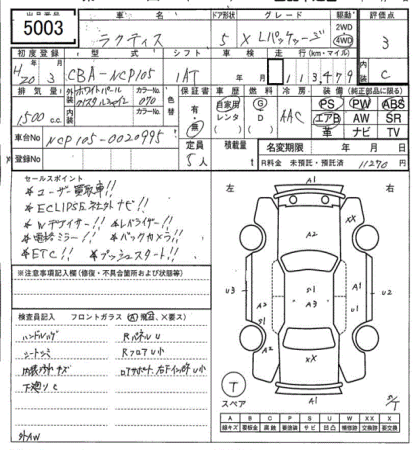 5003
車名 ラクティス
ドア形状 5
グレード X Lパッケージ
駆動 2WD 4WD
評価点 3
初度登録 H20 3
型式 CBA-NCP105
シフト 1AT
車検 年 月
走行(km・マイル) 113,479
内装 C
排気量 1500 cc
外装 ホワイトパール
カラーNo. 070
内装
カラーNo.
色替
保証書 有・無
車歴 自家用 レンタ
燃料 G D
冷房 AAC
装備(純正部品に限る)
PS PW ABS
エアB AW SR
革 ナビ TV
車台No NCP105-0020995
登録No
定員 5人
積載量 t
名変期限 年 月 日
R料金 未預託・預託済 11290 円
セールスポイント
★ユーザー買取車!!
★ECLIPSE社外ナビ!!
★Wデフィザー!! ★レバライザー!!
★電格ミラー!! ★バックカメラ!!
★ETC!! ★プッシュスタート!!
※注意事項記入欄(修復・不具合箇所および状態等)
検査員記入 フロントガラス (点、飛石、×要ス)
ハンドルハゲ RパネルU
シートシミ RフロアU小
内張汚れキズ
下廻りC
外AW
左 右
A1
XX
A2
U3
A2
S1
S1
A3
A1
S1
U2
XX
A1
T
スペア
S/T
A B C P S U W X XX
線キズ 要板金 腐食 要塗装 サビ 凹 補修跡 要交換 交換跡